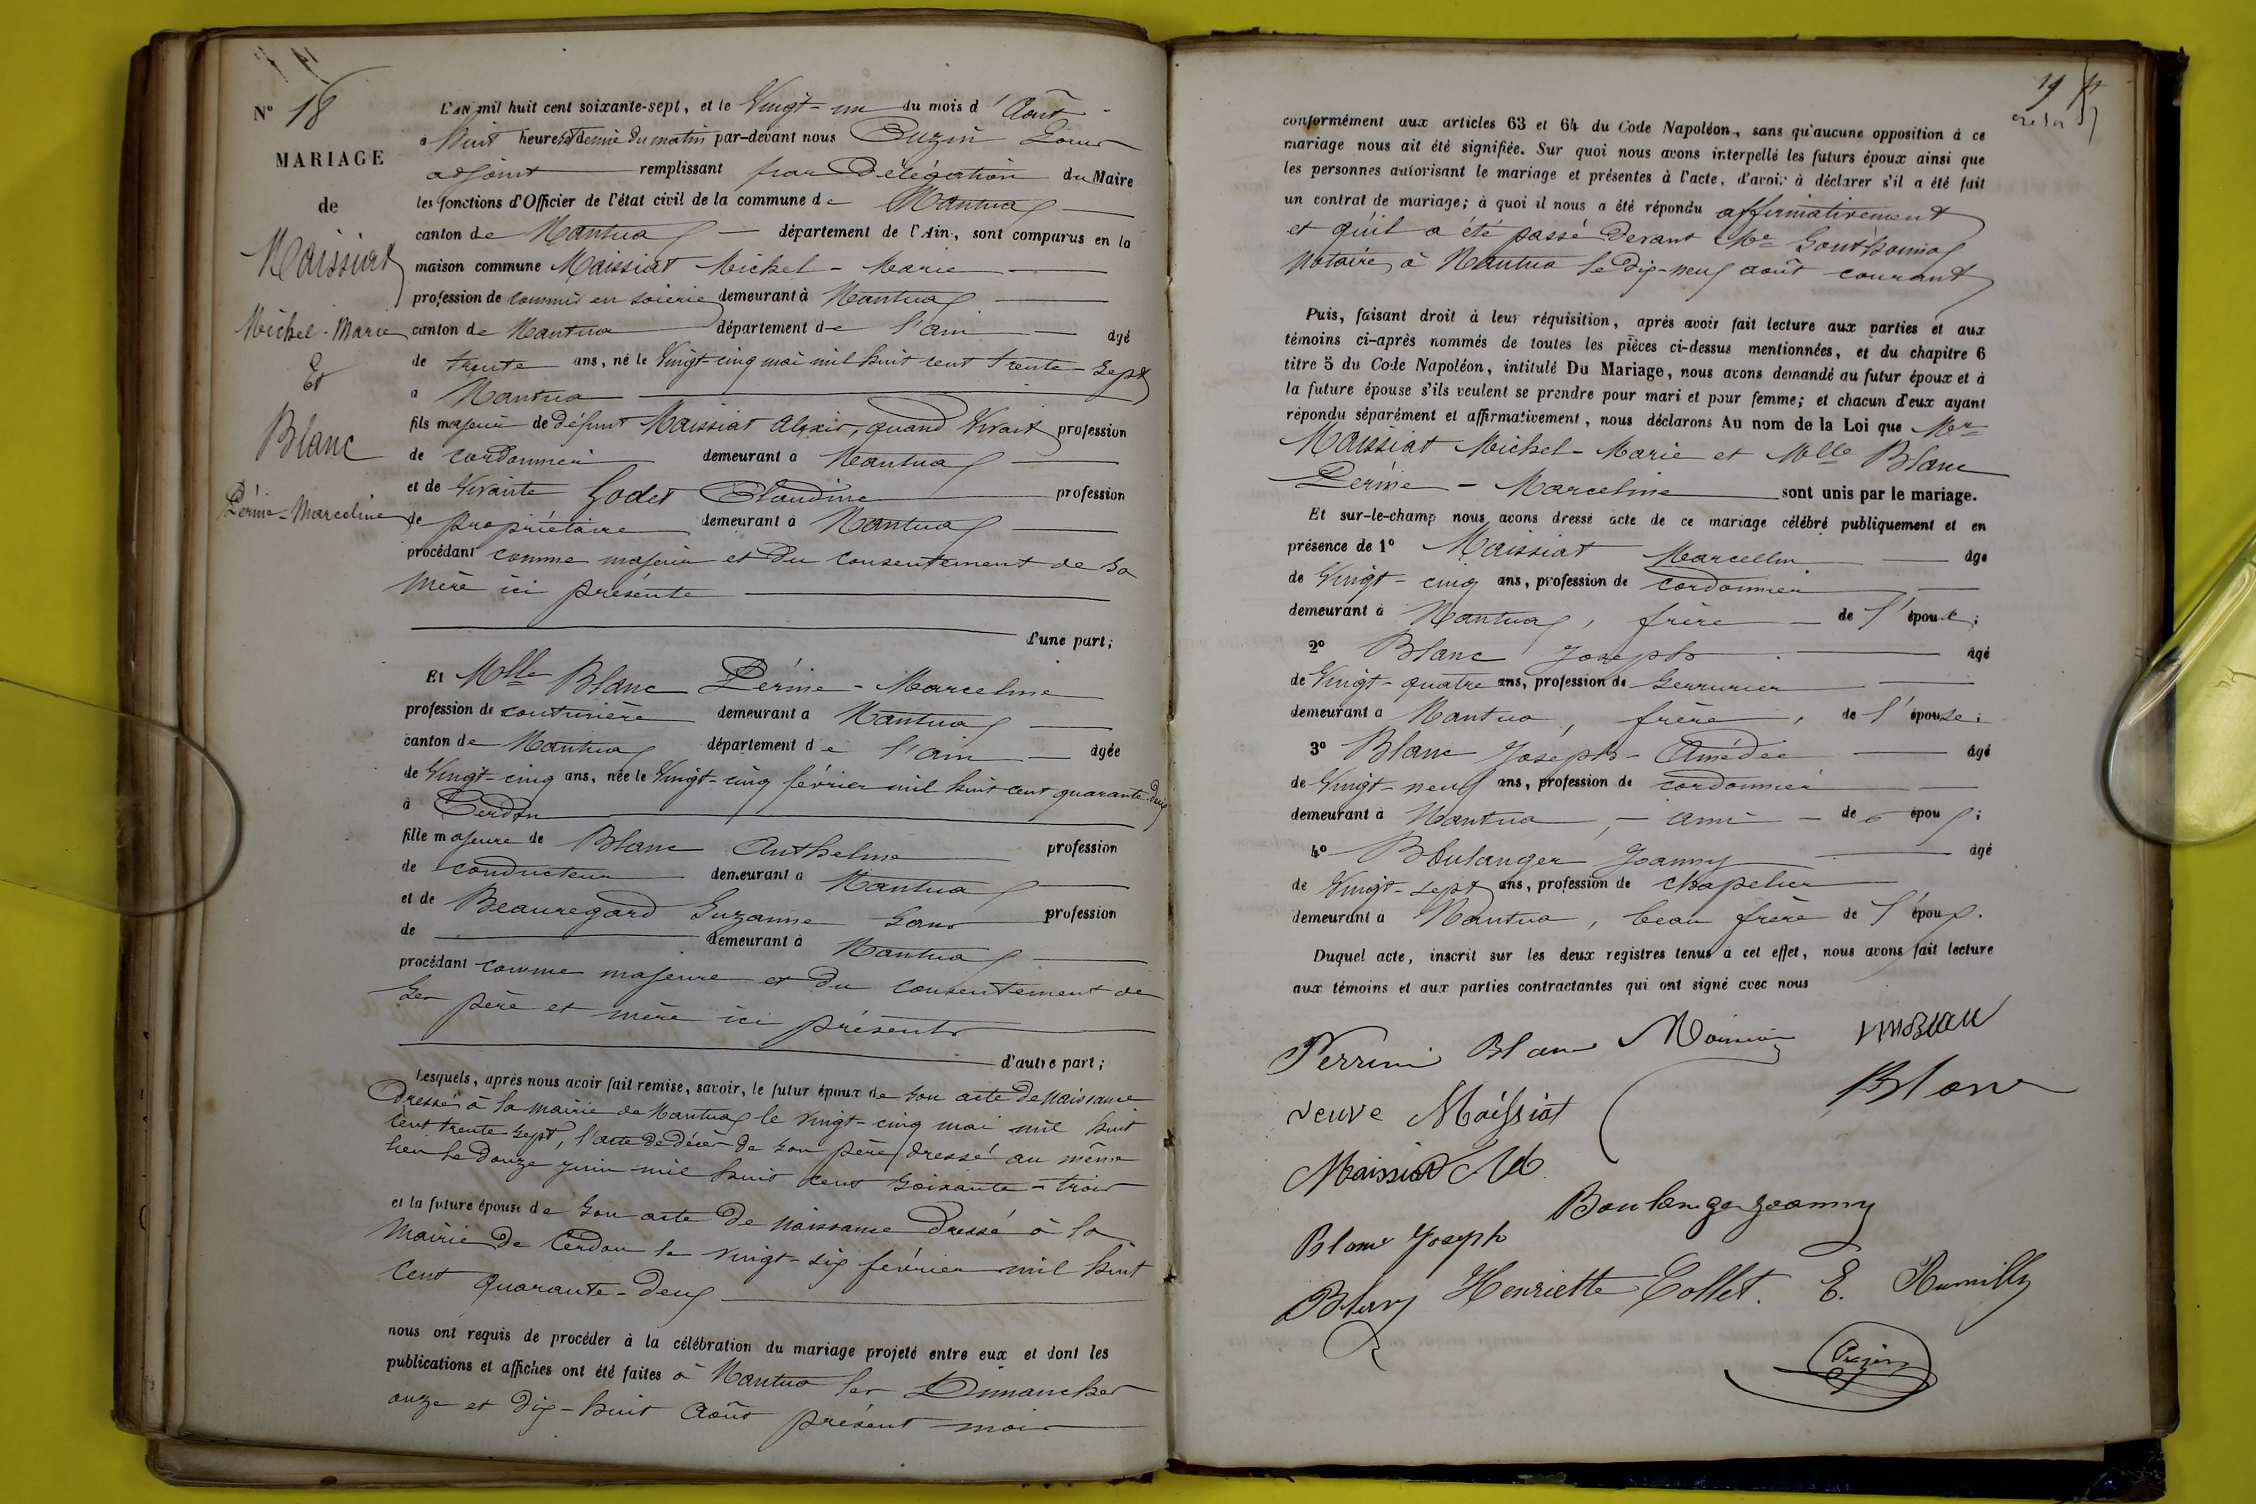 N° 18
MARIAGE
de
Maissiat
Michel-Marie
Et
Blanc
Périne-Marceline
L'AN mil huit cent soixante-sept, et le Vingt-un du mois d'Août
à huit heures et demie du matin par-devant nous Buzin Louis
adjoint remplissant par Délégation du Maire
les fonctions d'Officier de l'état civil de la commune de Nantua
canton de Nantua département de l'Ain, sont comparus en la
maison commune Maissiat Michel-Marie
profession de commis en soierie demeurant à Nantua
canton de Nantua département de l'ain âgé
de trente ans, né le Vingt-cinq mai mil huit cent trente-sept
à Nantua
fils majeur de défunt Maissiat Alexis, quand Vivait profession
de cordonnier demeurant à Nantua
et de Vivante Godet Claudine profession
de propriétaire demeurant à Nantua
procédant comme majeur et du consentement de sa
mère ici présente
d'une part;
Et Mlle Blanc Périne-Marceline
profession de couturière demeurant à Nantua
canton de Nantua département de l'ain âgée
de Vingt-cinq ans, née le Vingt-cinq février mil huit cent quarante-deux
à Cerdon
fille majeure de Blanc Anthelme profession
de conducteur demeurant à Nantua
et de Beauregard Suzanne Sans profession
de demeurant à Nantua
procédant comme majeure et du consentement de
ses père et mère ici présents
d'autre part;
Lesquels, après nous avoir fait remise, savoir, le futur époux de son acte de naissance
dressé à la mairie de Nantua le vingt-cinq mai mil huit
cent trente-sept, l'acte de décès de son père dressé au même
lieu le douze juin mil huit cent soixante-trois
et la future épouse de son acte de naissance dressé à la
mairie de Cerdon le vingt-six février mil huit
cent quarante-deux
nous ont requis de procéder à la célébration du mariage projeté entre eux et dont les
publications et affiches ont été faites à Nantua les Dimanches
onze et dix-huit Août présent mois
19
conformément aux articles 63 et 64 du Code Napoléon, sans qu'aucune opposition à ce
mariage nous ait été signifiée. Sur quoi nous avons interpellé les futurs époux ainsi que
les personnes autorisant le mariage et présentes à l'acte, d'avoir à déclarer s'il a été fait
un contrat de mariage; à quoi il nous a été répondu affirmativement
et qu'il a été passé devant Me
Notaire, à Nantua le dix-neuf août courant
Puis, faisant droit à leur réquisition, après avoir fait lecture aux parties et aux
témoins ci-après nommés de toutes les pièces ci-dessus mentionnées, et du chapitre 6
titre 5 du Code Napoléon, intitulé Du Mariage, nous avons demandé au futur époux et à
la future épouse s'ils veulent se prendre pour mari et pour femme; et chacun d'eux ayant
répondu séparément et affirmativement, nous déclarons Au nom de la Loi que Mr
Maissiat Michel-Marie et Mlle Blanc
Périne-Marceline sont unis par le mariage.
Et sur-le-champ nous avons dressé acte de ce mariage célébré publiquement et en
présence de 1° Maissiat Marcellin âgé
de Vingt-cinq ans, profession de cordonnier
demeurant à Nantua, frère de l'époux;
2° Blanc Joseph âgé
de Vingt-quatre ans, profession de serrurier
demeurant à Nantua, frère, de l'épouse;
3° Blanc Joseph-Amédée âgé
de Vingt-neuf ans, profession de cordonnier
demeurant à Nantua, ami de époux;
4° Boulanger Joanny âgé
de Vingt-sept ans, profession de chapelier
demeurant à Nantua, beau frère de l'époux.
Duquel acte, inscrit sur les deux registres tenus à cet effet, nous avons fait lecture
aux témoins et aux parties contractantes qui ont signé avec nous
Perrine Blanc
Blanc
veuve Maissiat
Maissiat Md
Boulanger Joanny
Blanc Joseph
Henriette Collet. E. Rumilly
Buzin